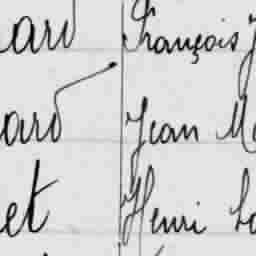 ard François J
ard Jean Ma
et Henri Lo